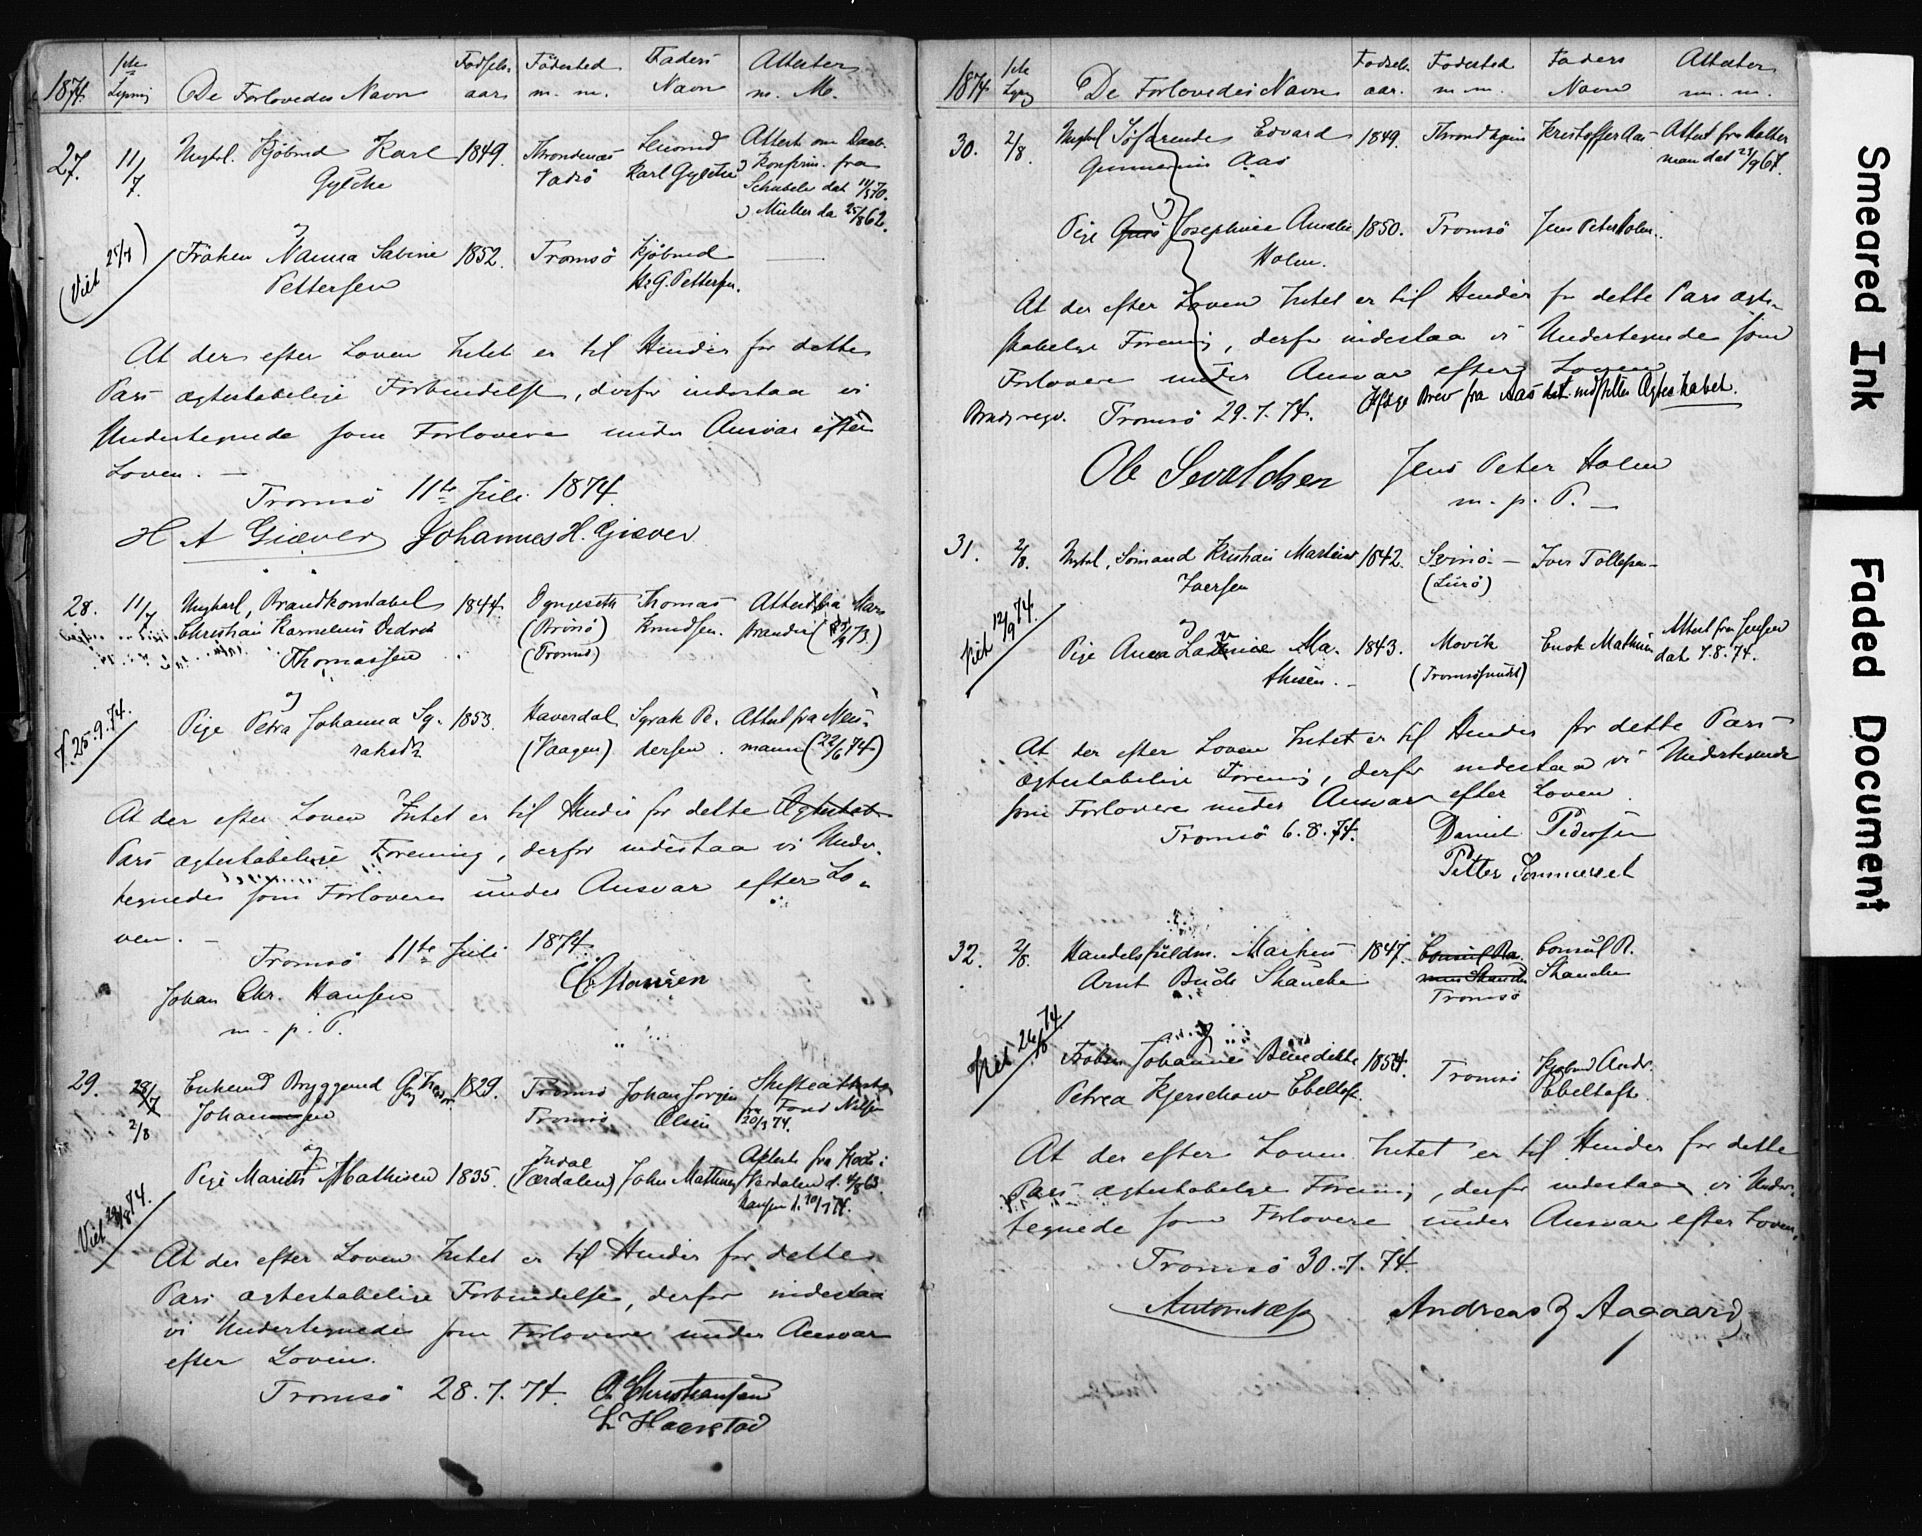 1874. 1ste Lysning De Forlovedes Navn Fødsels- aar Födested m. m. Faders Navn Attester m. M.
27. 11/7 Ungkrl. Kjøbmd Karl 1849. Throndenæs Karl Gylche Attest om Daab
Gylche Vadsö Konfirm. fra
Schubeler dat 11/5 70.
Müller da 25/8 62.
og
(Viet 25/7) Frøken Nanna Sabine 1852. Tromsö Kjöbmd
Pettersen H. G. Pettersen.
At der efter Loven Intet er til Hinder for dette
Pars ægteskabelige Forbindelse, derfor indestaa vi
Undertegnede som Forlovere under Ansvar efter
Loven. —
Tromsö 11te Juli 1874.
H A Giæver Johannes H. Giæver
28. 11/7 Ungkarl, Brandkonstabel 1844. Thomas Attest fra
Christian Kornelius Didrik (Brönö) Knudsen.
Thomassen (Tromsö)
og
V. 25.9.74. Pige Petra Johanna Sy- 1853. Haverdal Syrak Pe- Attest fra Neu-
raksd. (Vaagen) dersen. mann (22/6 74)
At der efter Loven Intet er til Hinder for dette Ægteskab
Pars ægteskabelige Forening, derfor indestaa vi Under-
tegnede som Forlovere under Ansvar efter Lo-
ven. —
Tromsö 11te Juli 1874.
Johan Chr. Hansen
m. p. P.
29. Enkemd Bryggemd 1829. Tromsö Johan Jørgen Skifteattest
2/8 Johannesen Tromsö Olsen fra Foged
20/3 74.
og
Viet 74. Pige Marith Mathisen 1835. Indal John
(Værdalen) Attest fra
Værdalen
At der efter Loven Intet er til Hinder for dette
Pars ægteskabelige Forbindelse, derfor indestaa
vi Undertegnede som Forlovere under Ansvar
efter Loven.
Tromsö 28.7.74. Christiansen
1874 1ste Lysng De Forlovedes Navn Födsels- aar. Fødested m. m. Faders Navn Attester m. m.
30. 2/8 Ungkrl Søfarende Edvard 1849. Throndhjem Kristoffer Aas Attest fra
Aas
og
Pige Josephine Amalie 1850. Tromsö Jens Peter Holm.
Holm.
At der efter Loven Intet er til Hinder for dette Pars ægte-
skabelige Forening, derfor indestaa vi Undertegnede som
Forlovere under Ansvar efter Loven.
Tromsö 29.7.74. Ifølge Brev fra Aas Ægteskabet.
Ole Sivaldsen Jens Peter Holm
m. p. P. —
31. 2/8. Ungkrl, Sömand Kristian Martinus 1842. Svinö — Iver Tollefsen —
Iversen (Lurö)
og
Viet 12/9 74. Pige Anna Ma- 1843. Movik Enok Mathisen Attest fra Jensen
thisen. — (Tromsösundet) dat 7.8.74.
At der efter Loven Intet er til Hinder for dette Pars
ægteskabelige Forening, derfor indestaa vi Undertegnede
som Forlovere under Ansvar efter Loven
Tromsö 6.8.74. Daniel Pedersen
Petter Sommersel
32. 2/8. Handelsfuldm. Markus 1847. Consul Consul R.
Arnt Budde Skancke Skancke
Tromsö
og
Viet 26/8 74 Frøken Johanne Benedikte 1854. Tromsö Kjøbmd Andr.
Petrea Kjerschow Ebeltoft. Ebeltoft.
At der efter Loven Intet er til Hinder for dette
Pars ægteskabelige Forening, derfor indestaa vi Under-
tegnede som Forlovere under Ansvar efter Loven.
Tromsö 30.7.74.
Anton Næss Andreas Z Aagaard
Smeared Ink
Faded Document